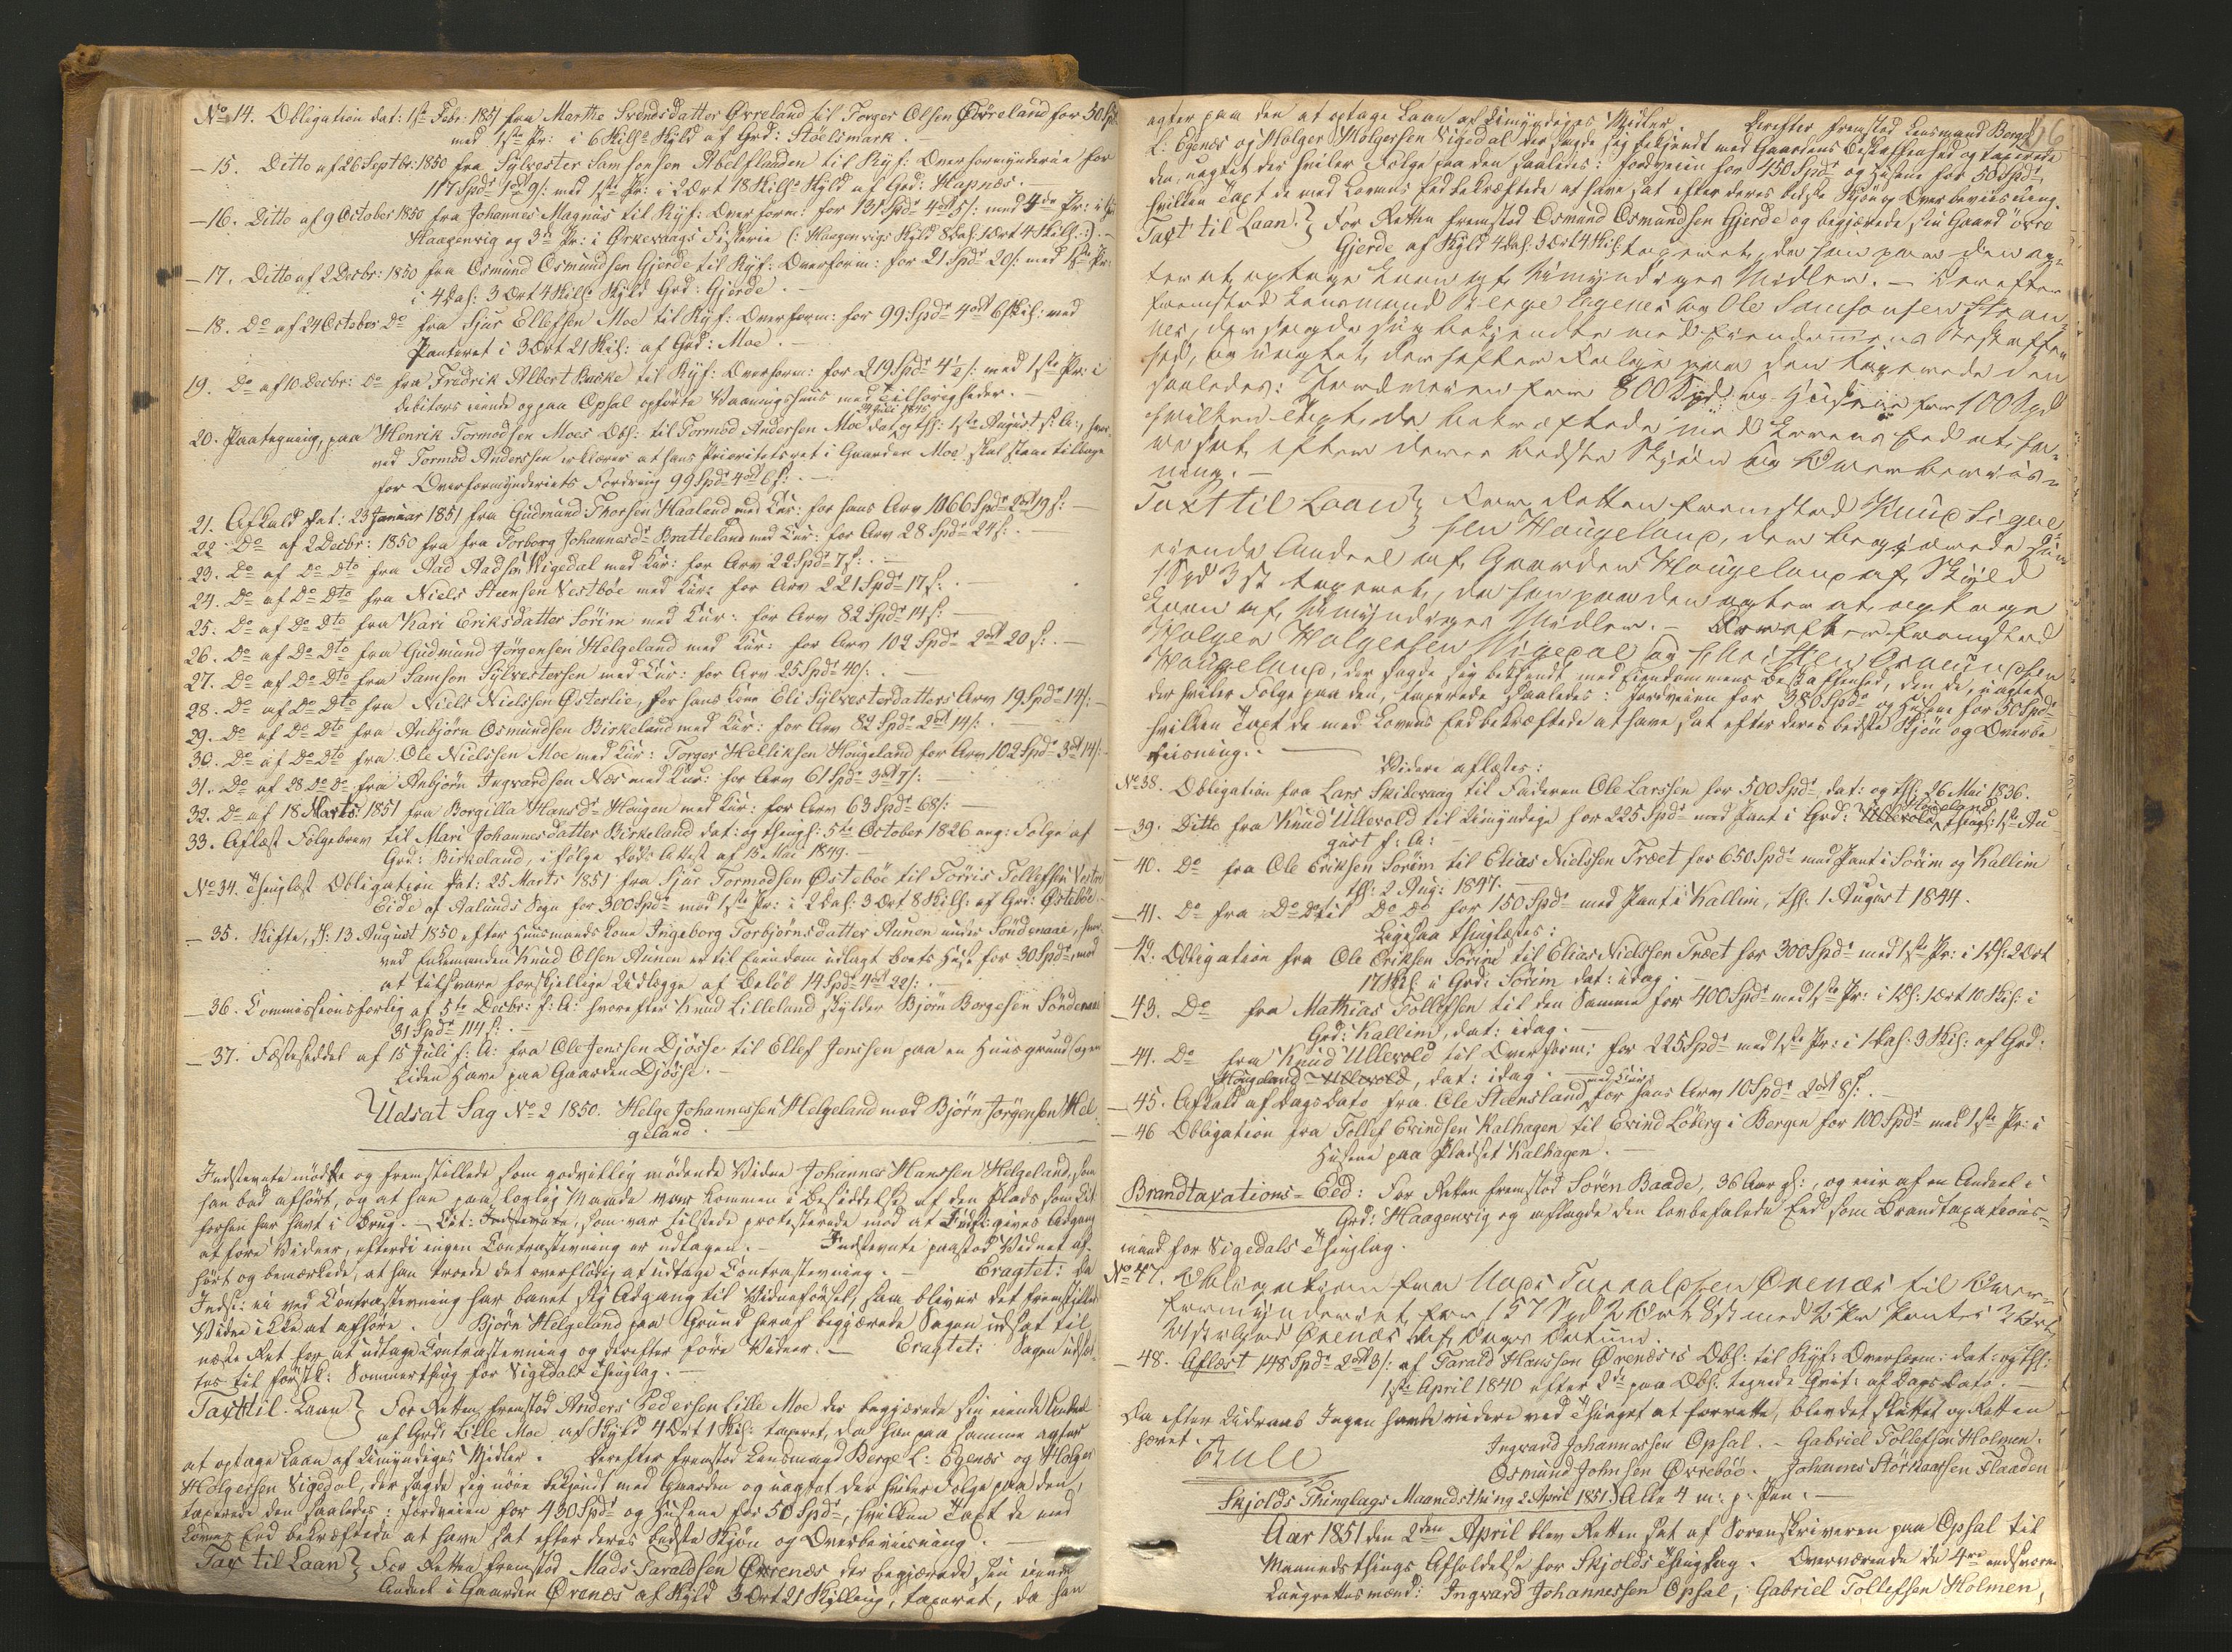 No 14. Obligation dat: 1ste Febr: 1851 fra Marthe Svendsdatter Ørreland til Torger Olsen Ørreland for 50 Spd
med 1ste Pr: i 6 Skill: Skyld af Grd: Støelsmark.
— 15. Ditto af 26 Septbr: 1850 fra Sylvester Samsonsen Abelflaaden til Ryf: Overformynderie for
117 Spdr 1ort 9 s: med 1ste Pr: i 2 Ort 18 Skill: Skyld af Grd: Hapnæs. —
— 16. Ditto af 9 October 1850 fra Johannes Magnus til Ryf: Overform: for 131 Spdr 4ort 5 s: med 4de Pr: i
Haagenvig og 3de Pr: i Ørkevaags Fiskerie (: Haagenvigs Skyld 8 Lah: 1 Ort 4 Skill: :). —
— 17. Ditto af 2 Decbr: 1850 fra Osmund Osmundsen Gjerde til Ryf: Overform: for 21 Spdr 20 s: med 1ste Pr:
i 4 Lah: 3 Ort 4 Skill: Skyld Grd: Gjerde. —
— 18. Do af 24 October Do fra Sjur Ellefsen Moe til Ryf: Overform: for 99 Spdr 4ort 6 Skil: med
Panteret i 3 Ort 21 Skil: af Grd: Moe. —
19. Do af 10 Decbr: Do fra Fredrik Albert Bucke til Ryf: Overform: for 219 Spdr 4½ s: med 1ste Pr: i
Debitors eiende og paa Opsal opførte Vaaningshuus med Tilhørigheder. —
24 Juli 1845
20. Paategning, paa Henrik Tormodsen Moes Obl: til Tormod Andersen Moe dat: og thl: 1ste August s: A:, hvor-
ved Tormod Andersen erklærer at hans Prioritetsret i Gaarden Moe skal staae tilbage
for Overformynderiets Fordring 99 Spdr 4ort 6 s: —
21. Afkald dat: 23 Januar 1851 fra Gudmund Thorsen Haaland med Cur: for hans Arv 1066 Spdr 2ort 19 s: —
22 Do af 2 Decbr: 1850 fra fra Torborg Johannesdr Bratteland med Cur: for Arv 28 Spdr 24 s: .
23. Do af Do Dto fra Aad Aadsen Vigedal med Cur: for Arv 22 Spdr 7 s: . —
24. Do af Do Dto fra Niels Steensen Vestbøe med Cur: for Arv 221 Spdr 17 s: . —
25. Do af Do Dto fra Kari Eriksdatter Sørim med Cur: for Arv 82 Spdr 14 s: —
26. Do af Do Dto fra Gudmund Jørgensen Helgeland med Cur: for Arv 102 Spdr 2ort 20 s: . —
27. Do af Do Dto fra Samson Sylvestersen med Cur: for Arv 25 Spdr 40 s: . —
28. Do af Do Dto fra Niels Nielssen Østerlie, for hans Kone Eli Sylvesterdatters Arv 19 Spdr 14 s: —
29. Do af Do Dto fra Anbjørn Osmundsen Birkeland med Cur: for Arv 82 Spdr 2ort 14 s: . —
30. Do af Do Dto fra Ole Nielssen Moe med Cur: Torger Helliksen Hougeland for Arv 102 Spdr 3ort 14 s: .
31. Do af 28 Do Do fra Anbjørn Ingvardsen Næs med Cur: for Arv 61 Spdr 3ort 7 s: . —
32. Do af 18 Marts 1851 fra Borgilla Hansdr Hougen med Cur: for Arv 63 Spdr 68 s: —
33. Aflæst Følgebrev til Mari Johannesdatter Birkeland dat: og thingl: 5te October 1826 ang: Følge af
Grd: Birkeland, ifølge Døds Attest af 15 Mai 1849. —
No 34. Thinglæst Obligation dat: 25 Marts 1851 fra Sjur Tormodsen Østebøe til Tørris Tollefsen Vestre
Eide af Aalunds Sogn for 300 Spdr med 1ste Pr: i 2 Lah: 3 Ort 8 Skill: af Grd: Østebøe. —
— 35. Skifte, sl: 13 August 1850 efter Huusmands Kone Ingeborg Torbjørnsdatter Aunen under Søndenaae, hvor-
ved Enkemanden Knud Olsen Aunen er til Eiendom udlagt Boets Huse for 30 Spdr, mod
at tilsvare forskjellige Udlægge af Beløb 14 Spdr 4ort 22 s: . —
— 36. Commissionsforlig af 5te Decbr: f: A: hvorefter Knud Lilleland skylder Bjørn Borgesen Søndenaae
31 Spdr 114 s: . —
— 37. Fæsteseddel af 15 Juli f: A: fra Ole Jenssen Djøsse til Ellef Jenssen paa en Huusgrund og en
liden Have paa Gaarden Djøsse. —
Udsat Sag No 2 1850. Helge Johannessen Helgeland mod Bjørn Jørgensen Hel-
geland.
Indstevnte mødte og fremstillede som godvillig mødende Vidne Johannes Hanssen Helgeland, som
han bad afhørt, og at han paa lovlig Maade var kommen i Besiddelse af den Plads som Cit-
horsen har havt i Brug. — Cit: Indstevnte, som var tilstede protesterede mod at Indst: gives Adgang
at føre Vidner, efterdi ingen Contrastevning er udtagen. — Indstevnte paastod Vidnet af-
hørt og bemærkede, at han troede det overflødig at udtage Contrastevning. — Eragtet: Da
Indst: ei ved Contrastevning har banet sig Adgang til Vidneførsel, saa bliver det fremstillede
Vidne ikke at afhøre. Bjørn Helgeland paa Grund heraf begjærede Sagen udsat til
næste Ret for at udtage Contrastevning og derefter føre Vidner. — Eragtet: Sagen udsæt-
tes til førstk: Sommerthing for Vigedals Thinglag. —
Taxt til Laan } For Retten fremstod Anders Pedersen Lille Moe der begjærede sin eiende Andeel
af Grd: Lille Moe af Skyld 4 Ort 1 Skil: taxeret, da han paa samme agter
at optage Laan af Umyndiges Midler. Derefter fremstod Lensmand Berge L: Egenes og Holger
Holgersen Vigedal, der sagde sig nøie bekjendt med Gaarden og uagtet der hviler Følge paa den,
taxerede den saaledes: Jordveien for 430 Spdr og Husene for 50 Spdr, hvilken Taxt de med
Lovens Eed bekræftede at have sat efter deres bedste Skjøn og Overbeviisning. —
Tax til Laan } For Retten fremstod Mads Taraldsen Ørenæs der begjærede sin eiende
Andeel i Gaarden Ørenæs af Skyld 3 Ort 21 Skylling, taxeret, da han
agter paa den at optage Laan af Umyndiges Midler. Derefter fremstod Lensmand Berge
L: Egenes og Holger Holgersen Vigedal der sagde sig bekjendt med Gaardens Beskaffenhed og taxerede
den, uagtet der hviler Følge paa den saaledes: Jordveien for 450 Spdr og Husene for 50 Spdr,
hvilken Taxt de med Lovens Eed bekræftede at have sat efter deres bedste Skjøn og Overbeviisning.
Taxt til Laan } For Retten fremstod Osmund Osmundsen Gjerde og begjærede sin Gaard øvre
Gjerde af Skyld 4 Lah: 3 Ort 4 Skil: taxeret, da han paa den ag-
ter at optage Laan af Umyndiges Midler. — Derefter
fremstod Lensmand Berge Egenes og Ole Samsonsen Stran-
nes, der sagde sig bekjendte med Eiendommens Beskaffen-
hed, og uagtet der hefter Følge paa den taxerede den
saaledes: Jordveien for 800 Spd og Husene for 100 Spd
hvilken Taxt de bekræftede med Lovens Eed at ha-
ve sat efter deres bedste Skjøn og Overbeviis-
ning. —
Taxt til Laan } For Retten fremstod Knud Sigve-
sen Hougeland, der begjærede sin
eiende Andeel af Gaarden Hougeland af Skyld
1 Spd 3 st taxeret, da han paa den agter at optage
Laan af Umyndiges Midler. — Derefter fremstod
Holger Holgersen Vigedal og Christen Osmundsen
Hougeland, der sagde sig bekjendt med Eiendommens Beskaffenhed, den de, uagtet
der hviler Følge paa den, taxerede saaledes: Jordveien for 380 Spdr og Husene for 50 Spdr
hvilken Taxt de med Lovens Eed bekræftede at have sat efter deres bedste Skjøn og Overbe-
viisning. —
Videre aflæstes:
No 38. Obligation fra Lars Skibevaag til Faderen Ole Larssen for 500 Spdr, dat: og thl: 26 Mai 1836.
— 39. Ditto fra Knud Ullevold til Umyndige for 225 Spdr med Pant i Grd: Ullevold Hougeland thingl: 1ste Au-
gust f: A: —
— 40. Do fra Ole Eriksen Sørim til Elias Nielssen Træet for 650 Spdr med Pant i Sørim og Kallim
thl: 2 Aug: 1847. —
— 41. Do fra Do Do til Do Do for 150 Spdr med Pant i Kallim, thl: 1 August 1844.
Ligesaa thinglæstes:
— 42. Obligation fra Ole Eriksen Sørim til Elias Nielssen Træet for 300 Spdr med 1ste Pr: i 1 Lh: 2 Ort
17 Skil: i Grd: Sørim dat: idag. —
— 43. Do fra Mathias Tollefsen til den Samme for 400 Spdr med 1ste Pr: i 1 Lh: 1 Ort 10 Skil: i
Grd: Kallim, dat: idag. —
— 44. Do fra Knud Ullevold til Overform: for 225 Spdr med 1ste Pr: i 1 Lah: 3 Skil: af Grd:
Hougeland Ullevold, dat: idag. —
— 45. Afkald af Dags Dato fra Ole Stensland med Cur: for hans Arv 10 Spdr 2ort 8 s: . —
— 46 Obligation fra Tollef Evindsen Kalhagen til Evind Løberg i Bergen for 100 Spdr med 1ste Pr: i
Husene paa Pladset Kalhagen. —
Brandtaxations-Eed: For Retten fremstod Søren Baade, 36 Aar gl:, og eier af en Andeel i
Grd: Haagenvig og aflagde den lovbefalede Eed som Brandtaxations-
mand for Vigedals Thinglag.
No 47. Obligation fra Mads Taraldsen Ørenæs til Over-
formynderiet for 157 Spd 2 Ort 8 s: med 1ste Pr: Pant i 3 Ort
21 s: i Grd Ørenæs af Dags Datum.
— 48. Aflæst 148 Spdr 2ort 3 s: af Tarald Hanssen Ørenæs's Obl: til Ryf: Overform: dat: og thl:
1ste April 1840 efter paa Obl: tegnede Qvit: af Dags Dato. —
Da efter Udraab Ingen havde videre ved Thinget at forrette, blev det sluttet og Retten
hævet.
Ingvard Johannessen Opsal. — Gabriel Tollefsen Holmen.
Osmund Johnsen Ørrebøe. Johannes Størkaarsen Flaaden
Skjolds Thinglags Maanedsthing 2 April 1851. Alle 4 m: p: Pen: —
Aar 1851 den 2den April blev Retten sat af Sorenskriveren paa Opsal til
Maanedsthings Afholdelse for Skjolds Thinglag. Overværende de 4re edsvorne
Laugrettesmænd: Ingvard Johannessen Opsal, Gabriel Tollefsen Holmen,